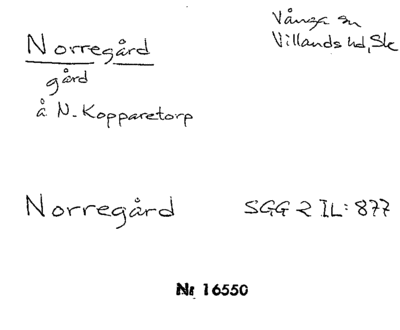 Norregård
gård
å N. Kopparetorp
Vånga sn
Villands hd, Sk
Norregård
SGG 2 IL: 877
Nr 16550